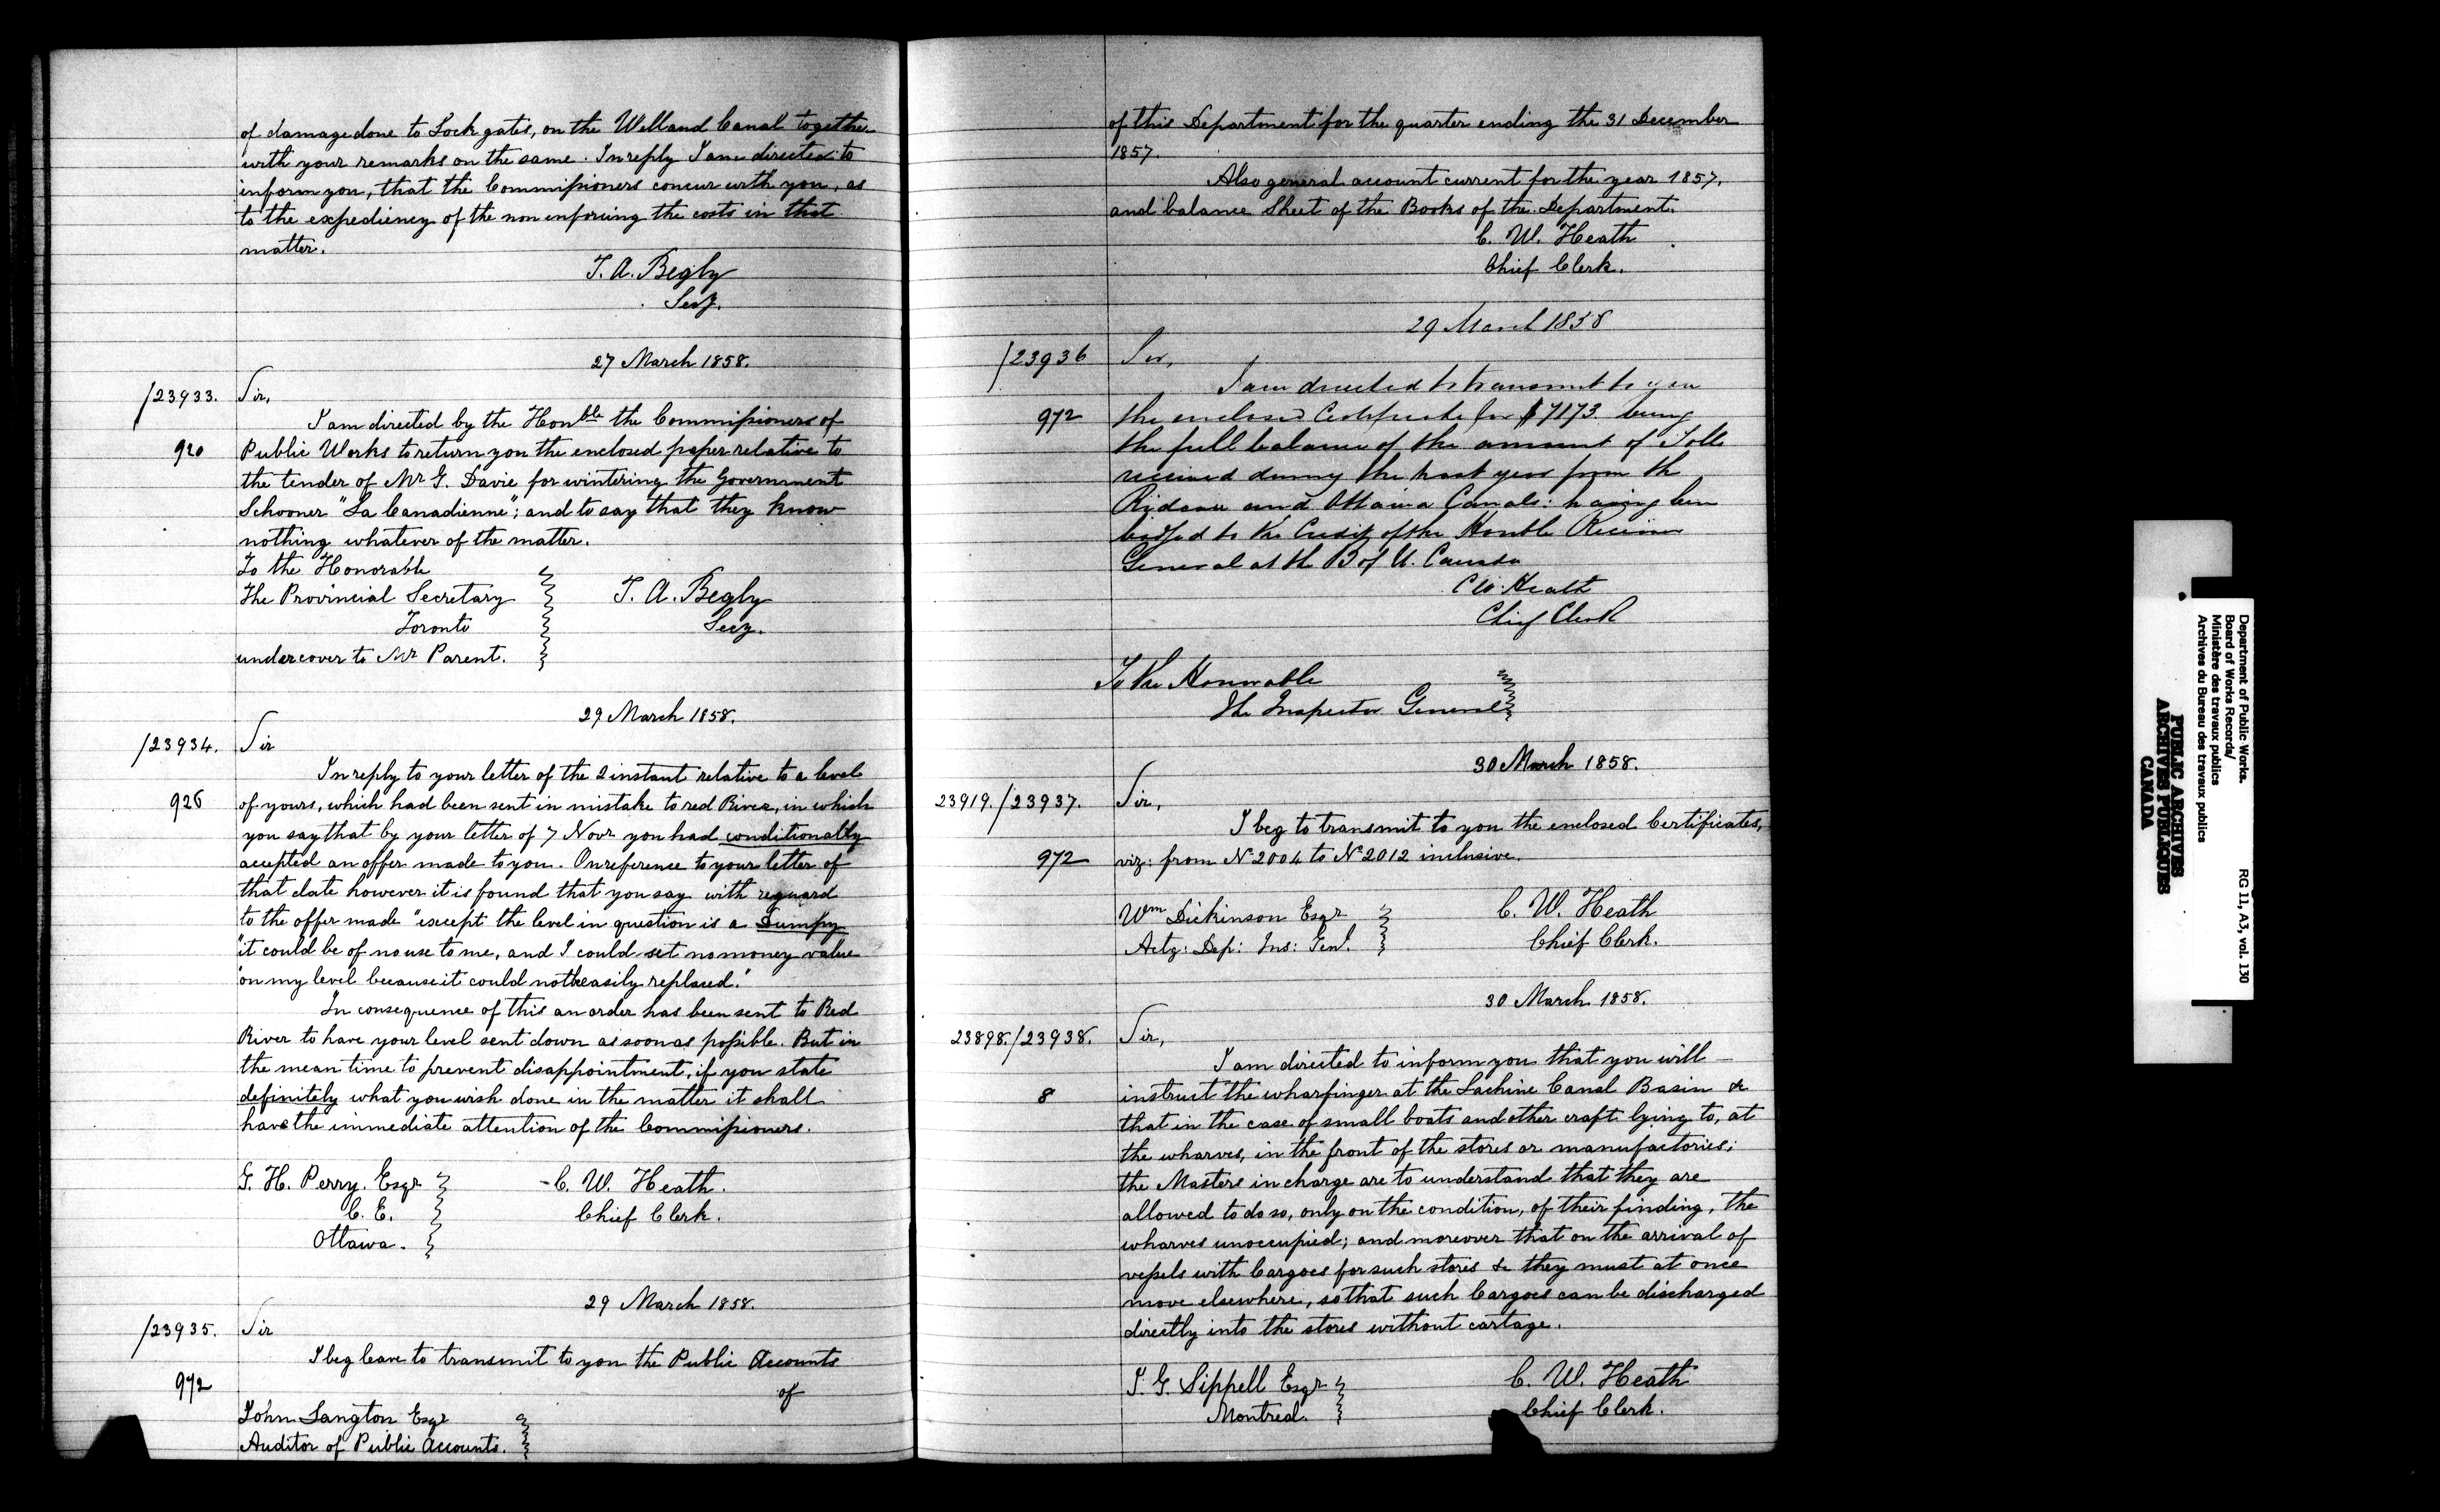 of damage done to Lock gates, on the Welland Canal together
with your remarks on the same. In reply I am directed to
inform you, that the Commissioners concur with you, as
to the expediency of the non enforcing the costs in that
matter.
T. A. Begly
Secy.
27 March 1858.
/23933. Sir,
I am directed by the Honble the Commissioners of
920 Public Works to return you the enclosed paper relative to
the tender of Mr G. Davie for wintering the Government
Schooner "La Canadienne"; and to say that they know
nothing whatever of the matter.
To the Honorable
The Provincial Secretary T. A. Begly
Toronto Secy.
undercover to Mr Parent.
29 March 1858.
/23934. Sir
In reply to your letter of the 2 instant relative to a level
926 of yours, which had been sent in mistake to red River, in which
you say that by your letter of 7 Novr you had conditionally
accepted an offer made to you. On reference to your letter of
that date however it is found that you say with reguard
to the offer made "except the level in question is a Dumpy
"it could be of no use to me, and I could set no money value
"on my level because it could not be easily replaced."
In consequence of this an order has been sent to Red
River to have your level sent down as soon as possible. But in
the mean time to prevent disappointment, if you state
definitely what you wish done in the matter it shall
have the immediate attention of the Commissioners.
G. H. Perry. Esqr C. W. Heath.
C. E. Chief Clerk.
Ottawa.
29 March 1858.
/23935. Sir
I beg leave to transmit to you the Public Accounts
972 of
John Langton Esqr
Auditor of Public Accounts.
of this Department for the quarter ending the 31 December
1857.
Also general account current for the year 1857,
and balance Sheet of the Books of the Department.
C. W. Heath
Chief Clerk.
29 March 1858
/23936 Sir,
I am directed to transmit to you
972 the enclosed Certificate for $7173. being
the full balance of the amount of Tolls
received during the past year from the
Rideau and Ottawa Canals: having been
lodged to the Credit of the Honble Receiver
General at the B of U. Canada
C W. Heath
Chief Clerk
To the Honorable
The Inspector General
30 March 1858.
23919./23937. Sir,
I beg to transmit to you the enclosed Certificates,
972 viz: from No 2004 to No 2012 inclusive.
Wm Dickinson Esqr C. W. Heath
Actg: Dep: Ins: Genl. Chief Clerk.
30 March 1858.
23898./23938. Sir,
I am directed to inform you that you will
8 instruct the wharfinger at the Lachine Canal Basin &c
that in the case of small boats and other craft lying to, at
the wharves, in the front of the stores or manufactories;
the Masters in charge are to understand that they are
allowed to do so, only on the condition, of their finding, the
wharves unoccupied; and moreover that on the arrival of
vessels with Cargoes for such stores &c they must at once
move elsewhere, so that such Cargoes can be discharged
directly into the stores without cartage.
J. G. Sippell Esqr C. W. Heath
Montreal. Chief Clerk.
Department of Public Works.
Board of Works Records/
Ministère des travaux publics
Archives du Bureau des travaux publics
RG 11, A3, vol. 130
PUBLIC ARCHIVES
ARCHIVES PUBLIQUES
CANADA